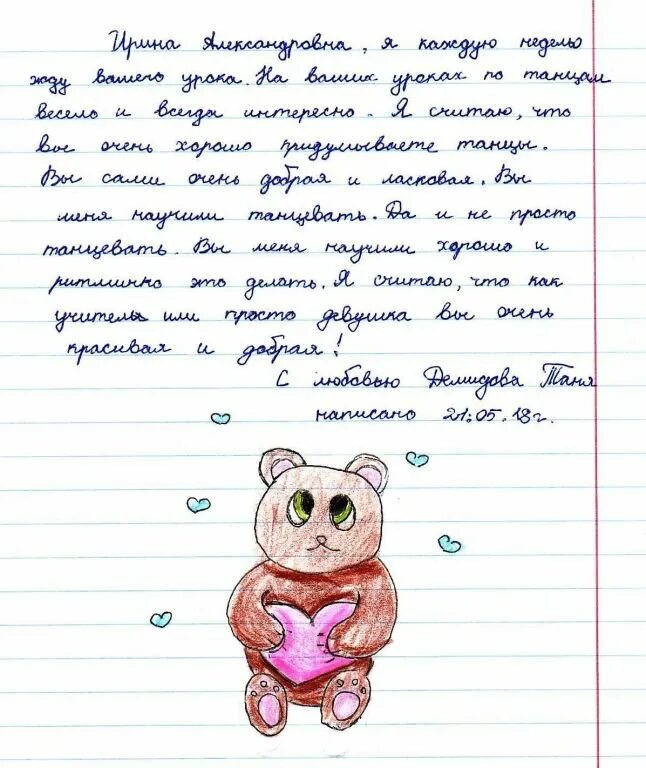 Ирина Александровна, я каждую неделю
жду вашего урока. На ваших уроках по танцам
весело и всегда интересно. Я считаю, что
вы очень хорошо придумываете танцы.
Вы сами очень добрая и ласковая. Вы
меня научили танцевать. Да и не просто
танцевать. Вы меня научили хорошо и
ритмично это делать. Я считаю, что как
учитель или просто девушка вы очень
красивая и добрая!
С любовью Демидова Таня
написано 21.05.18г.